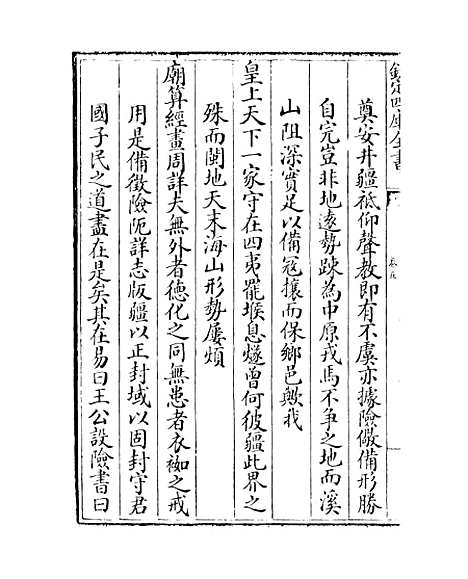 欽定四庫全書
卷五
奠安井疆祗仰聲教即有不虞亦據險儆備形勝
自完豈非地逺勢踈為中原戎馬不争之地而溪
山阻深實足以備冦攘而保鄉邑歟我
皇上天下一家守在四夷罷堠息燧曾何彼疆此界之
殊而閩地天末海山形勢屢煩
廟算經畫周詳夫無外者德化之同無患者衣袽之戒
用是備徵險阨詳志版疆以正封域以固封守君
國子民之道盡在是矣其在易曰王公設險書曰